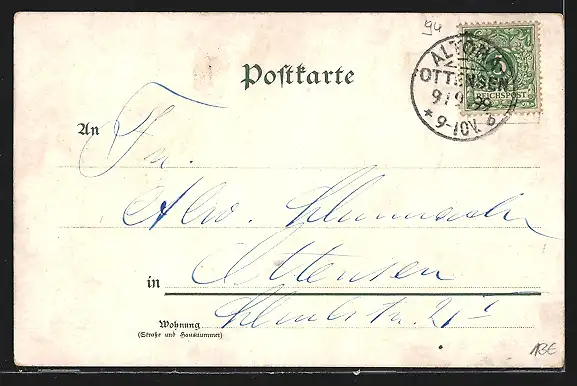 94
ALTONA
OTTENSEN
9/9 99
* 9-10V. b
REICHSPOST
Postkarte
An Fr.
Alw.
in Ottensen
Wohnung
(Straße und Hausnummer)
21 I
ABE